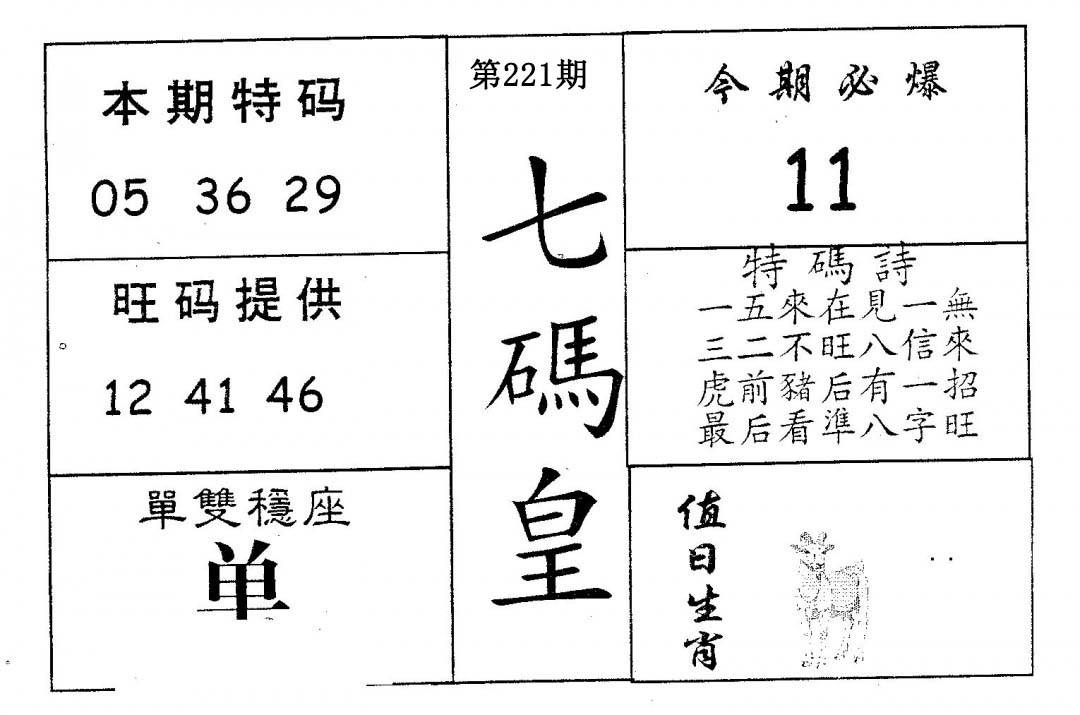 本期特码
05 36 29
旺码提供
12 41 46
單雙穩座
单
第221期
七碼皇
今期必爆
11
特碼詩
一五來在見一無
三二不旺八信來
虎前豬后有一招
最后看準八字旺
值日生肖